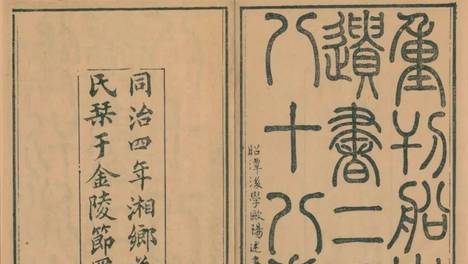 重刊船山
遺書二
八十八
昭潭後學歐陽述書
同治四年湘鄉
氏栞于金陵節署